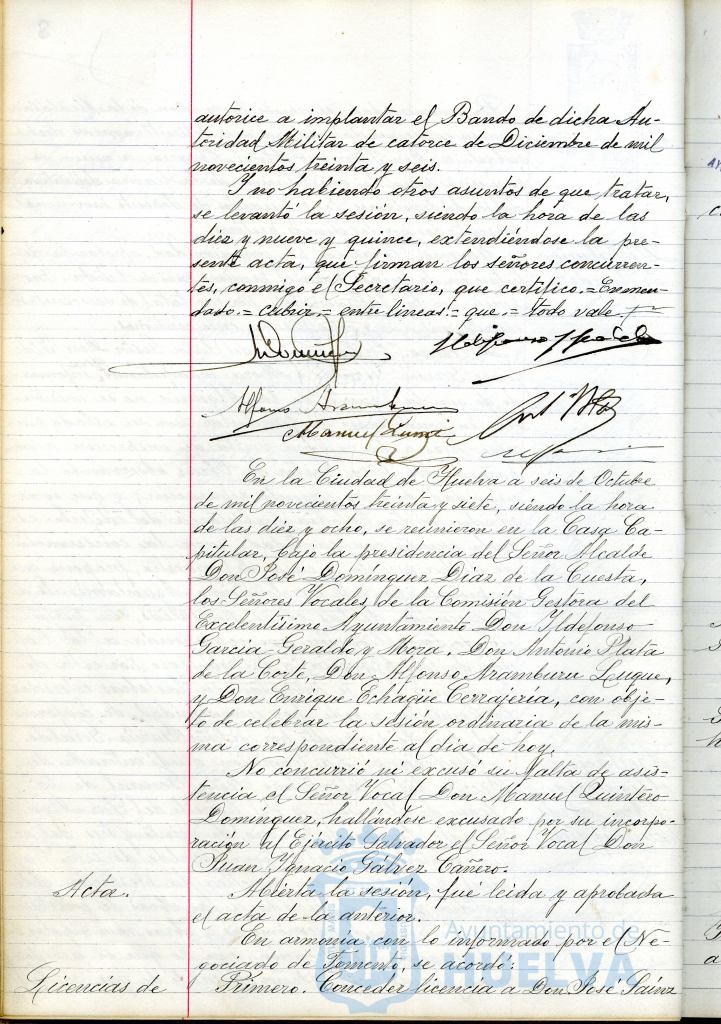 autorice a implantar el Bando de dicha Au-
toridad Militar de catorce de Diciembre de mil
novecientos treinta y seis.
Y no habiendo otros asuntos de que tratar,
se levantó la sesión, siendo la hora de las
diez y nueve y quince, extendiéndose la pre-
sente acta, que firman los señores concurren-
tes, conmigo el Secretario, que certifico.=Enmen-
dado.= cubrir.= entre lineas.= que.= todo vale.
Alfonso Aramburu
Manuel
En la Ciudad de Huelva a seis de Octubre
de mil novecientos treinta y siete, siendo la hora
de las diez y ocho, se reunieron en la Casa Ca-
pitular, bajo la presidencia del Señor Alcalde
Don José Domínguez Diaz de la Cuesta,
los Señores Vocales de la Comisión Gestora del
Excelentísimo Ayuntamiento Don Ildefonso
Garcia Geraldo y Mora, Don Antonio Plata
de la Corte, Don Alfonso Aramburu Luque,
y Don Enrique Echagüe Cerrajería, con obje-
to de celebrar la sesión ordinaria de la mis-
ma correspondiente al día de hoy.
No concurrió ni excusó su falta de asis-
tencia el Señor Vocal Don Manuel Quintero
Domínguez, hallándose excusado por su incorpo-
ración al Ejército Salvador el Señor Vocal Don
Juan Ygnacio Gálvez Cañero.
Acta. Abierta la sesión, fué leida y aprobada
el acta de la anterior.
En armonía con lo informado por el Ne-
gociado de Fomento, se acordó:
Licencias de Primero. Conceder licencia a Don José Sáinz
Ayuntamiento de
HUELVA